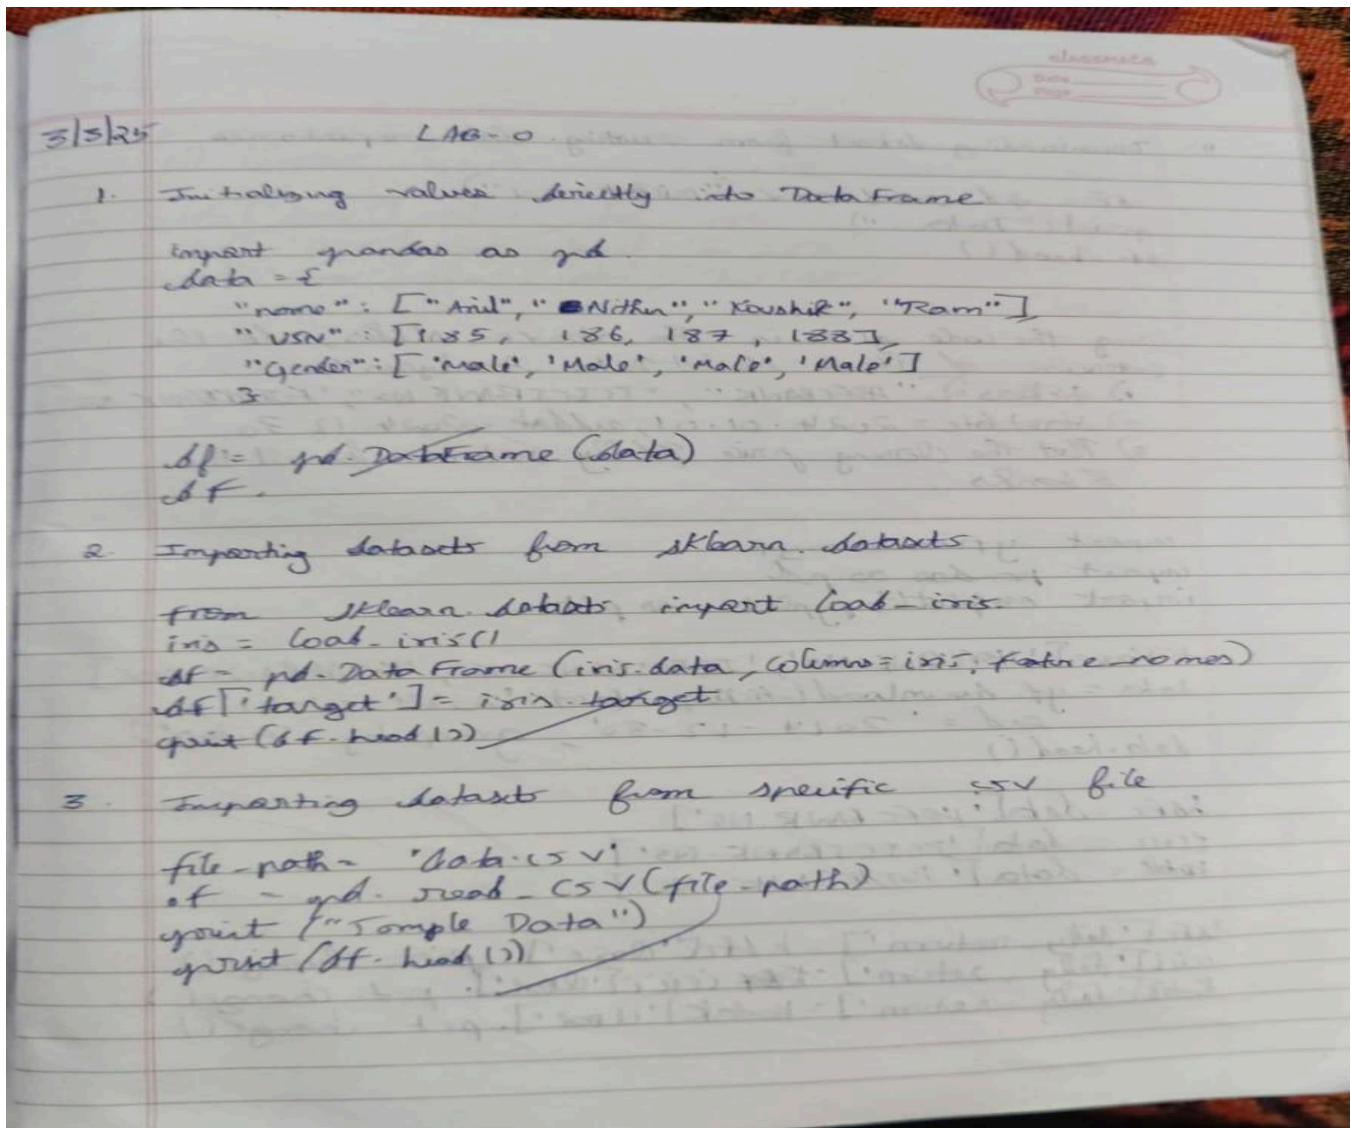 classmate
Date
Page
3/3/25 LAB-0
1. Initializing values deriectly into DataFrame
import pandas as pd.
data = {
"name": ["Anil", "Nithin", "Koushik", "Ram"],
"USN": [185, 186, 187, 188],
"Gender": ['Male', 'Male', 'Male', 'Male']
}
df = pd.DataFrame(data)
df.
2. Importing datasets from sklearn.datasets
from sklearn.datasets import load_iris.
iris = load_iris()
df = pd.DataFrame(iris.data, columns=iris.feature_names)
df['target'] = iris.target
print(df.head())
3. Importing datasets from specific csv file
file_path = 'data.csv'
df = pd.read_csv(file_path)
print("Sample Data")
print(df.head())